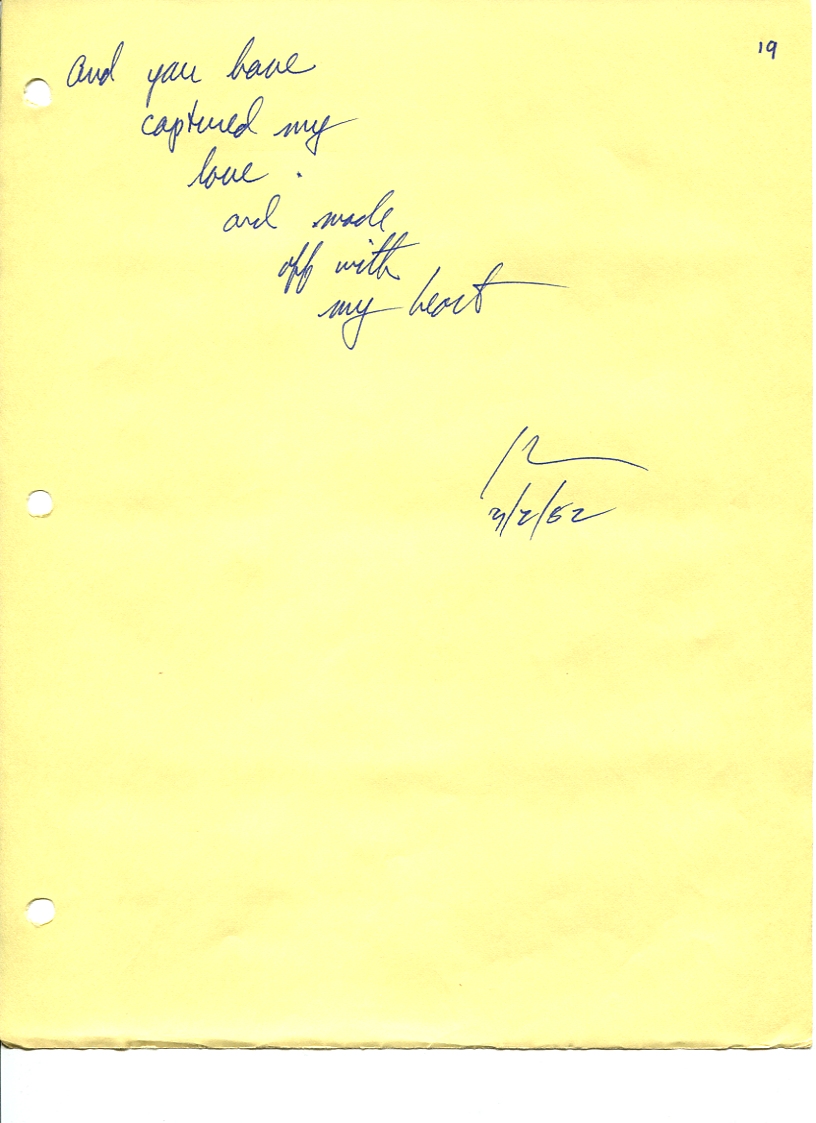 19
And you have
captured my
love .
and made
off with
my heart
3/2/82